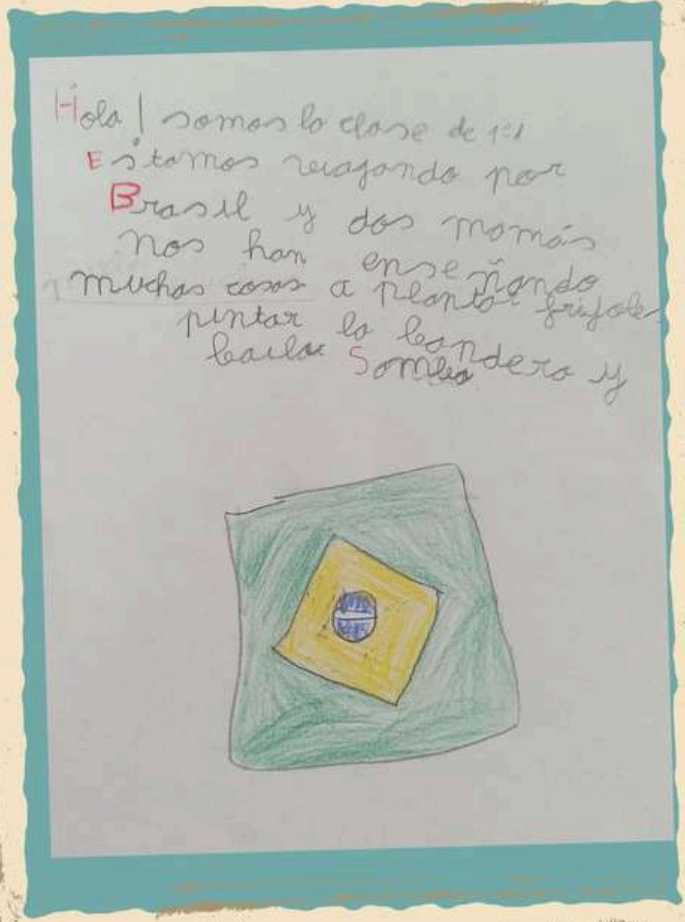 Hola! somos la clase de 1º1
Estamos viajando por
Brasil y dos mamás
nos han enseñando
muchas cosas a plantar frijoles
pintar la bandera y
bailar Samba